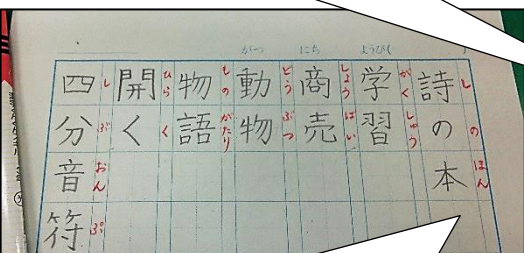 がつ にち ようび
詩の本
しのほん
学習
がくしゅう
商売
しょうばい
動物
どうぶつ
物語
ものがたり
開く
ひらく
四分音符
しぶおんぷ